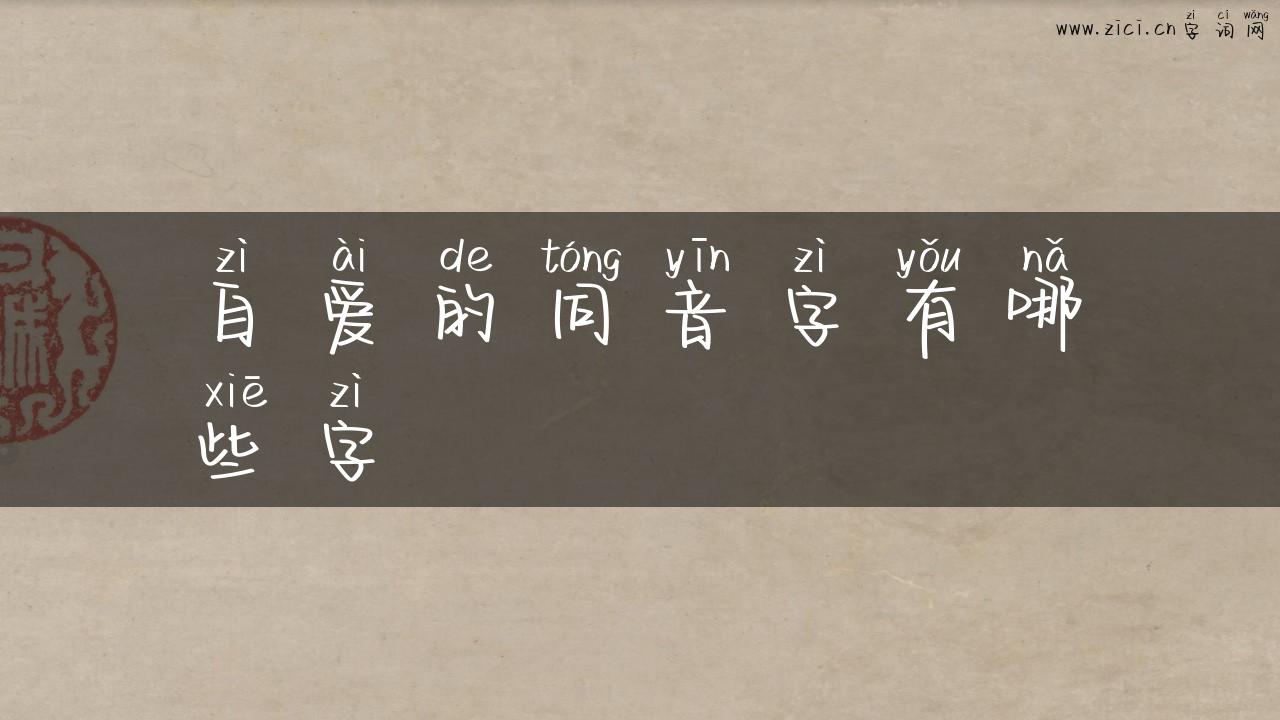 zì cí wǎng
www.zici.cn 字 词 网
zì ài de tóng yīn zì yǒu nǎ
自 爱 的 同 音 字 有 哪
xiē zì
些 字